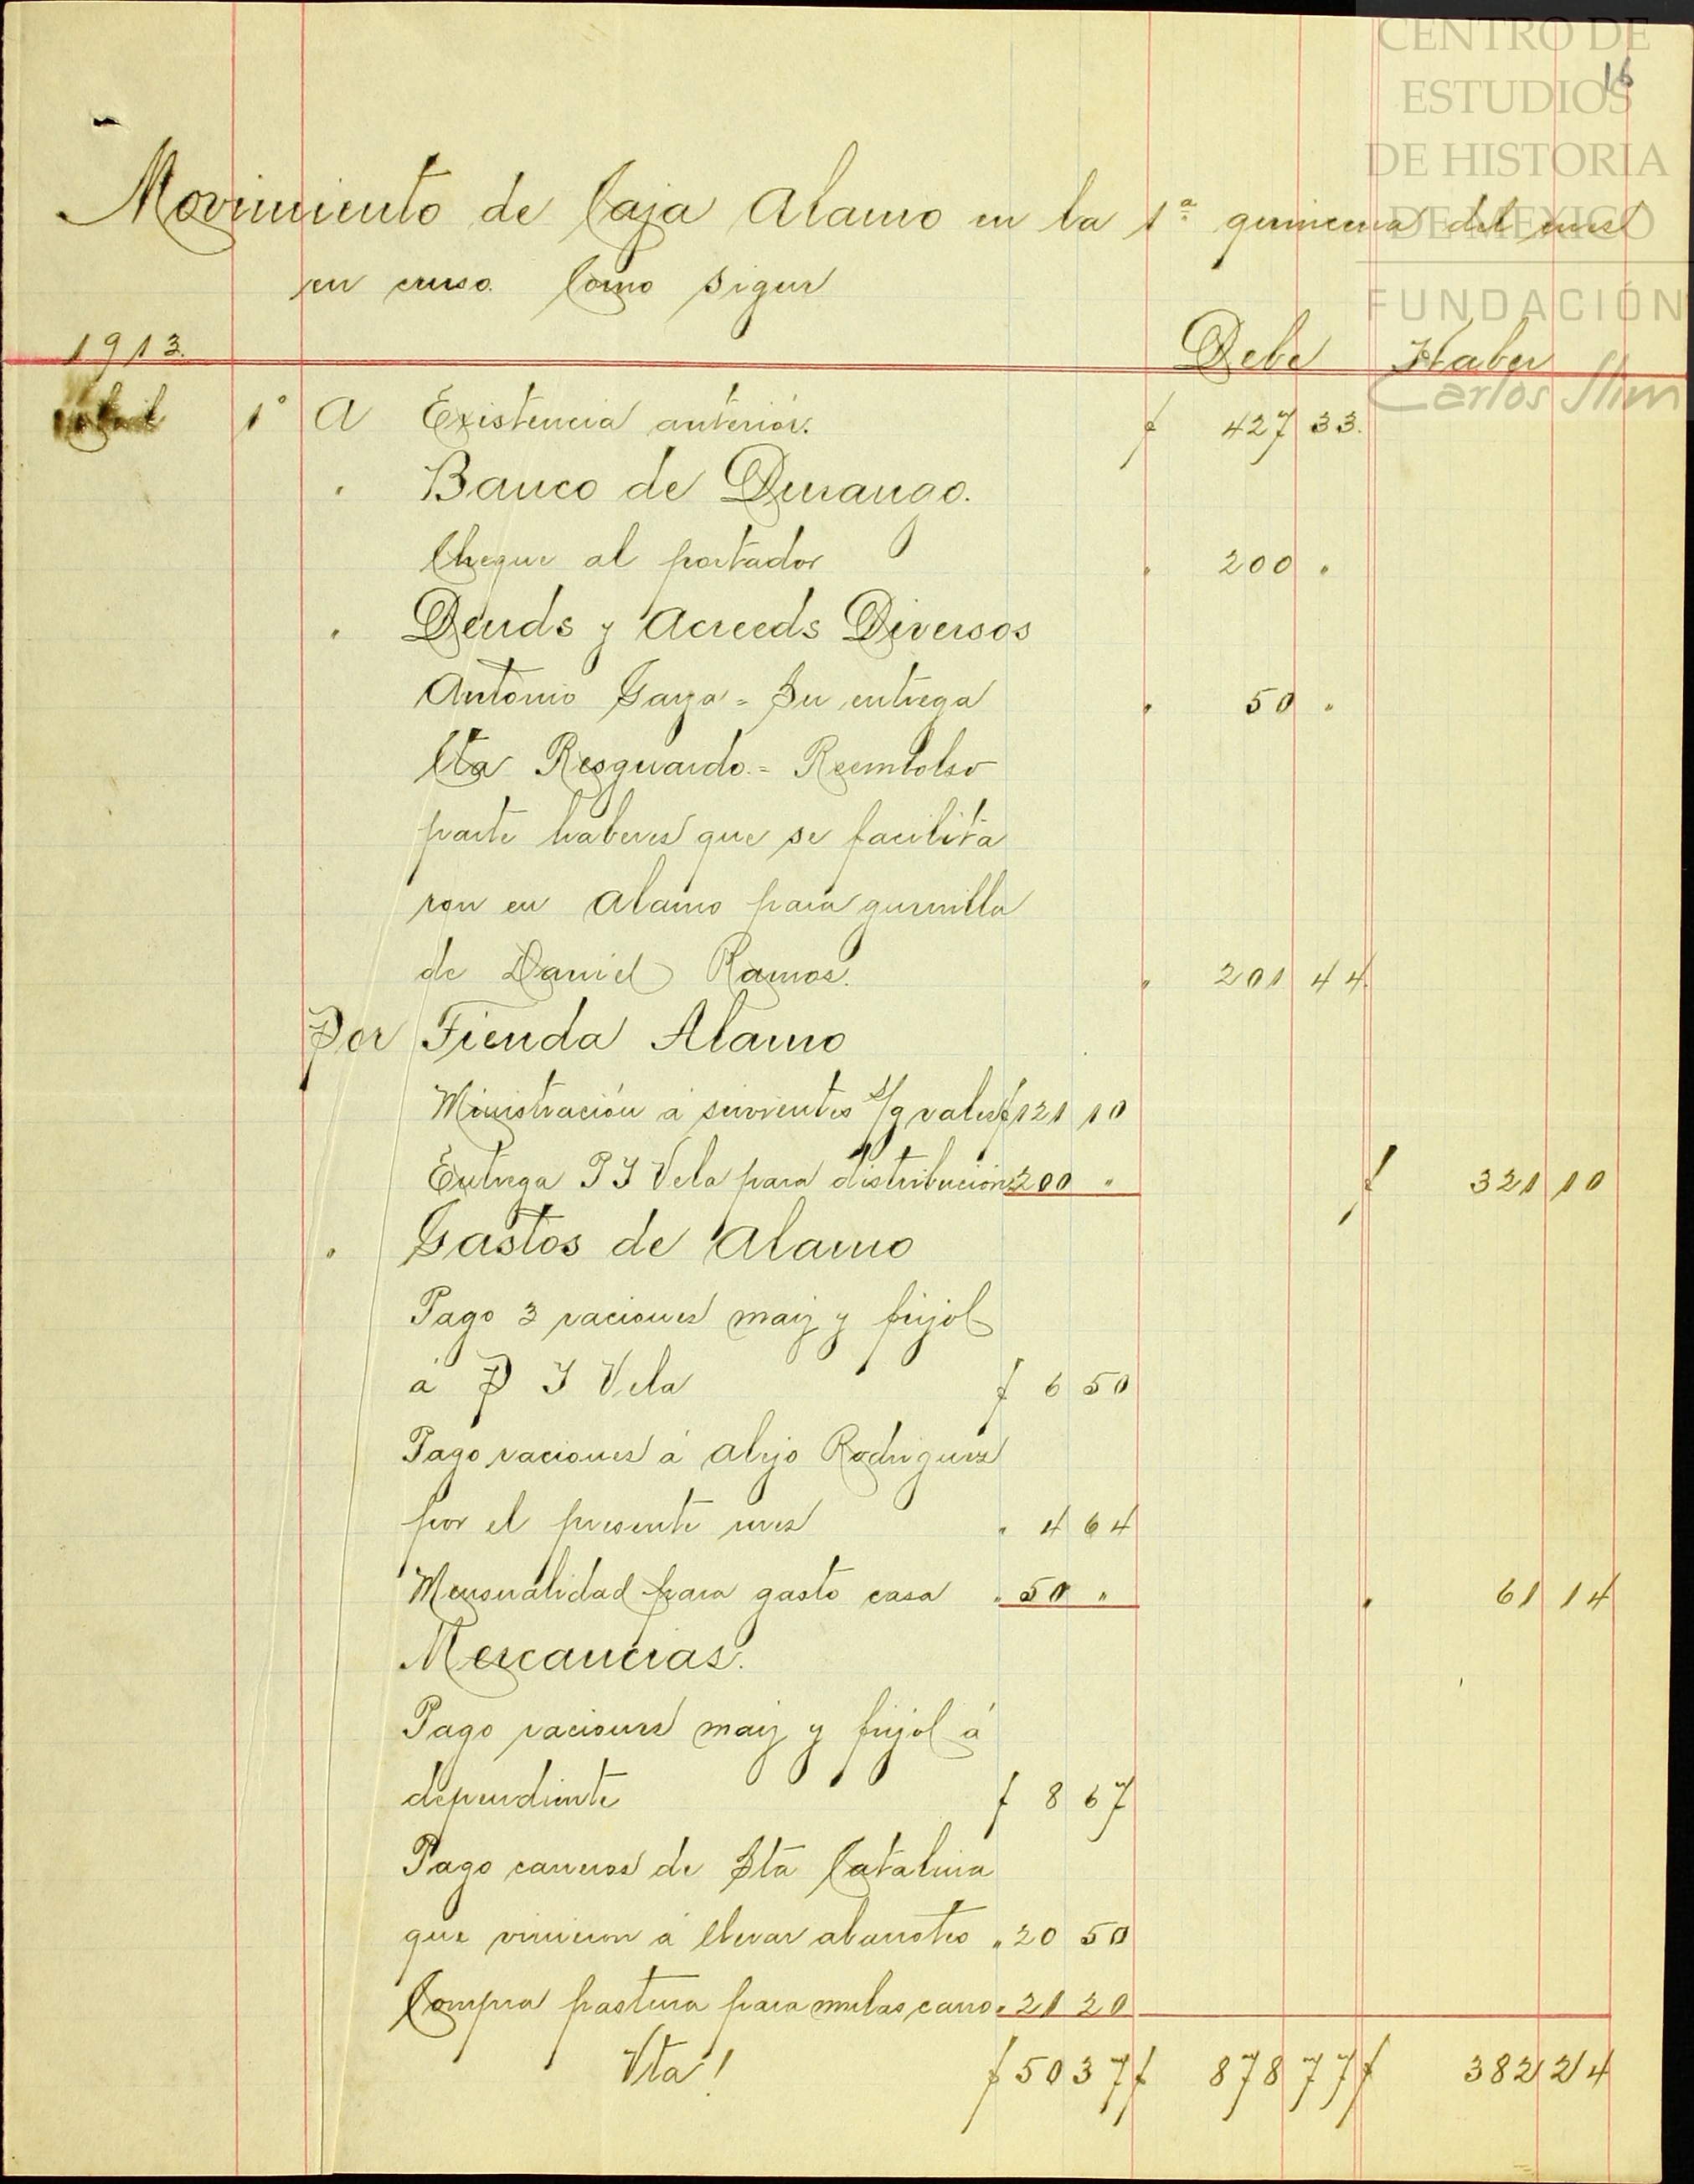 CENTRO DE
ESTUDIOS
DE HISTORIA
DE MÉXICO
FUNDACIÓN
Carlos Slim
16
Movimiento de Caja Alamo en la 1ª quincena del mes
en curso. Como sigue
1913. Debe Haber
Abril 1° A Existencia anterior. $ 427 33.
" Banco de Durango.
Cheque al portador " 200 "
" Deuds y Acreeds Diversos
Antonio Garza = Su entrega " 50 "
Cta Resguardo. = Reembolso
parte haberes que se facilita
ron en Alamo para guerrilla
de Daniel Ramos. " 201 44.
Por Tienda Alamo
Ministración á sirvientes s/g vales $ 121 10
Entrega P I Vela para distribución " 200 " $ 321 10
" Gastos de Alamo
Pago 3 raciones maiz y frijol
á P I Vela $ 6 50
Pago raciones á Alejo Rodriguez
por el presente mes " 4 64
Mensualidad para gasto casa " 50 " " 61 14
Mercancias.
Pago raciones maiz y frijol á
dependiente $ 8 67
Pago carreros de Sta Catalina
que vinieron á llevar abarrotes " 20 50
Compra pastura para mulas carro " 21 20
Vta! $ 50 37 $ 878 77 $ 382 24